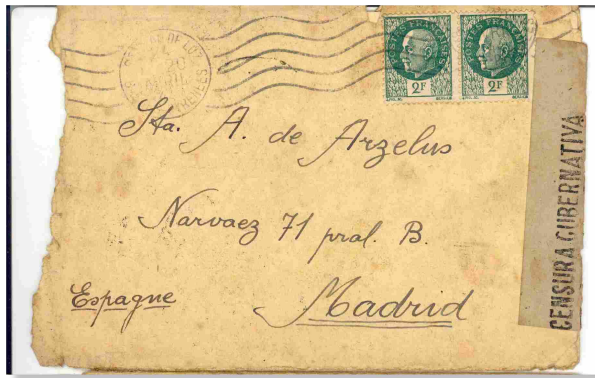 POSTES FRANÇAISES POSTES FRANÇAISES
2F 2F
Sta. A. de Arzelus
Narvaez 71 pral. B.
Espagne
Madrid
CENSURA GUBERNATIVA